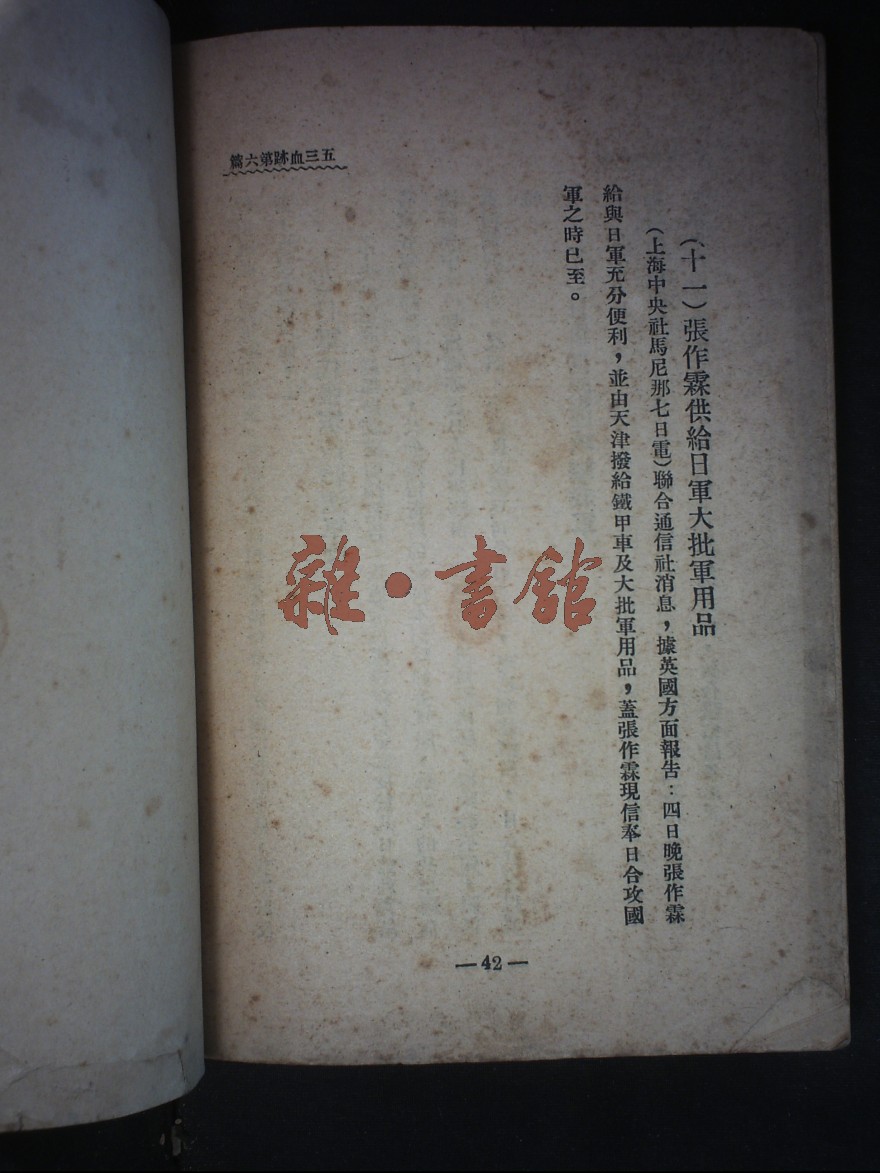 五三血跡第六篇
(十一)張作霖供給日軍大批軍用品
(上海中央社馬尼那七日電)聯合通信社消息,據英國方面報告:四日晚張作霖
給與日軍充分便利,並由天津撥給鐵甲車及大批軍用品,蓋張作霖現信奉日合攻國
軍之時已至。
雜·書館
—42—